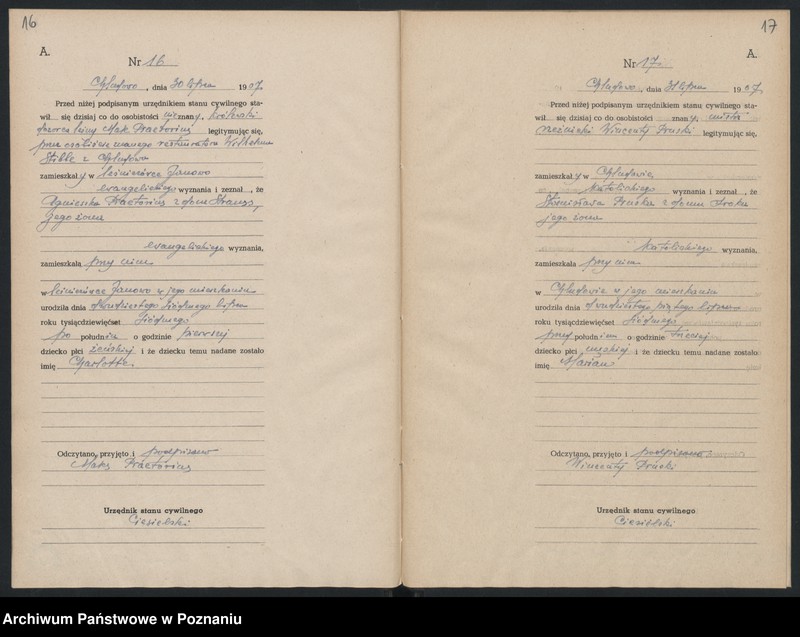 16
A.
Nr 16
, dnia 30 lipca 1907.
Przed niżej podpisanym urzędnikiem stanu cywilnego sta-
wił się dzisiaj co do osobistości nieznany, królewski
Praetorius legitymując się,
zamieszkały w leśniczówce Janowo
ewangelickiego wyznania i zeznał , że
Praetorius z domu
jego żona
ewangelickiego wyznania,
zamieszkała przy nim
w leśniczówce Janowo w jego mieszkaniu
urodziła dnia dwudziestego siódmego lipca
roku tysiącdziewięćset siódmego
po południu o godzinie pierwszej
dziecko płci żeńskiej i że dziecku temu nadane zostało
imię Charlotte
Odczytano, przyjęto i podpisano
Praetorius
Urzędnik stanu cywilnego
Ciesielski
17
A.
Nr 17.
, dnia 31 lipca 1907
Przed niżej podpisanym urzędnikiem stanu cywilnego sta-
wił się dzisiaj co do osobistości znany, mistrz
rzeźnicki Wincenty legitymując się,
zamieszkały w
katolickiego wyznania i zeznał , że
Stanisława z domu
jego żona
katolickiego wyznania,
zamieszkała przy nim
w w jego mieszkaniu
urodziła dnia dwudziestego piątego lipca
roku tysiącdziewięćset siódmego
przed południem o godzinie trzeciej
dziecko płci męskiej i że dziecku temu nadane zostało
imię Marian
Odczytano, przyjęto i podpisano
Wincenty
Urzędnik stanu cywilnego
Ciesielski
Archiwum Państwowe w Poznaniu